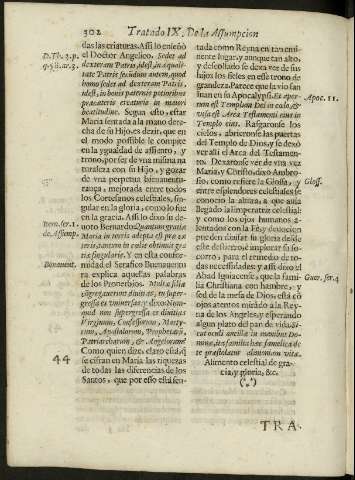 302 Tratado IX. De la Assumpcion
das las criaturas. Assi lo enseñò
el Doctor Angelico. Sedet ad
dexteram Patris, idest, in æquali-
tate Patris secundum autem, quod
homo sedet ad dexteram Patris,
idest, in bonis paternis potioribus
præ cæteris creaturis in maiori
beatitudine. Segun esto, estar
Maria sentada à la mano dere-
cha de su Hijo, es dezir, que en
el modo possible le compite
en la ygualdad de assiento, y
trono, por ser de vna misma na
turaleza con su Hijo, y gozar
de vna perpetua bienauentu-
rança, mejorada entre todos
los Cortesanos celestiales, sin-
gular en la gloria, como lo fue
en la gracia. Assi lo dixo su de-
uoto Bernardo: Quantum gratia
Maria in terris adepta est præ cæ
teris, tantum in cœlis obtinuit glo-
riæ singularis. Y en esta confor-
midad el Serafico Buenauentu
ra explica aquellas palabras
de los Prouerbios. Multæ filiæ
congregauerunt diuitias, tu super-
gressa es vniuersas, y dixo: Num
quid non supergressa es diuitias
Virginum, Confessorum, Marty-
rum, Apostolorum, Prophetarum,
Patriarcharum, & Angelorum?
Como quien dize, claro està, q̃
se cifran en Maria las riquezas
de todas las diferencias de los
Santos, que por esso està sen-
D. Th. 3. p.
q. 58. ar. 3.
Bern. ser. 1.
de Assump.
Bonauent.
44
tada como Reyna en tan emi-
nente lugar, y aunque tan alto,
y descollado se dexa ver de sus
hijos los fieles en este trono de
grandeza. Parece que la vio san
Iuan en su Apocalypsi. Et aper-
tum est Templum Dei in cœlo, & vi-
sa est Arca Testamenti eius in
Templo eius. Rasgaronse los
cielos, abrieronse las puertas
del Templo de Dios, y se dexò
ver alli el Arca del Testamento.
Dexaronse ver de vna vez
Maria, y Christo, dixo Ambro-
sio, como refiere la Glossa, y
entre esplendores celestiales se
conociò la altura, à que auia
llegado la Imperatriz celestial:
y como los ojos humanos a-
lentados con la Fè, y deuocion
pue den diuisar su gloria desde
este destierro, è implorar su so-
corro, para el remedio de to-
das necessidades: y assi dixo el
Abad Igniacense, que la fami-
lia Christiana con hambre, y
sed de la mesa de Dios, està cõ
ojos atentos mirando à la Rey-
na de los Angeles, y esperando
algun plato del pan de vida. Si-
cut oculi ancillæ in manibus Do-
minæ, ita familiæ hæc famelica de
te præstolatur alimoniam vitæ.
Alimento celestial de gra-
cia, y gloria, &c.
(***)
Apoc. 11.
Gloss.
Guer. ser. 4
TRA.